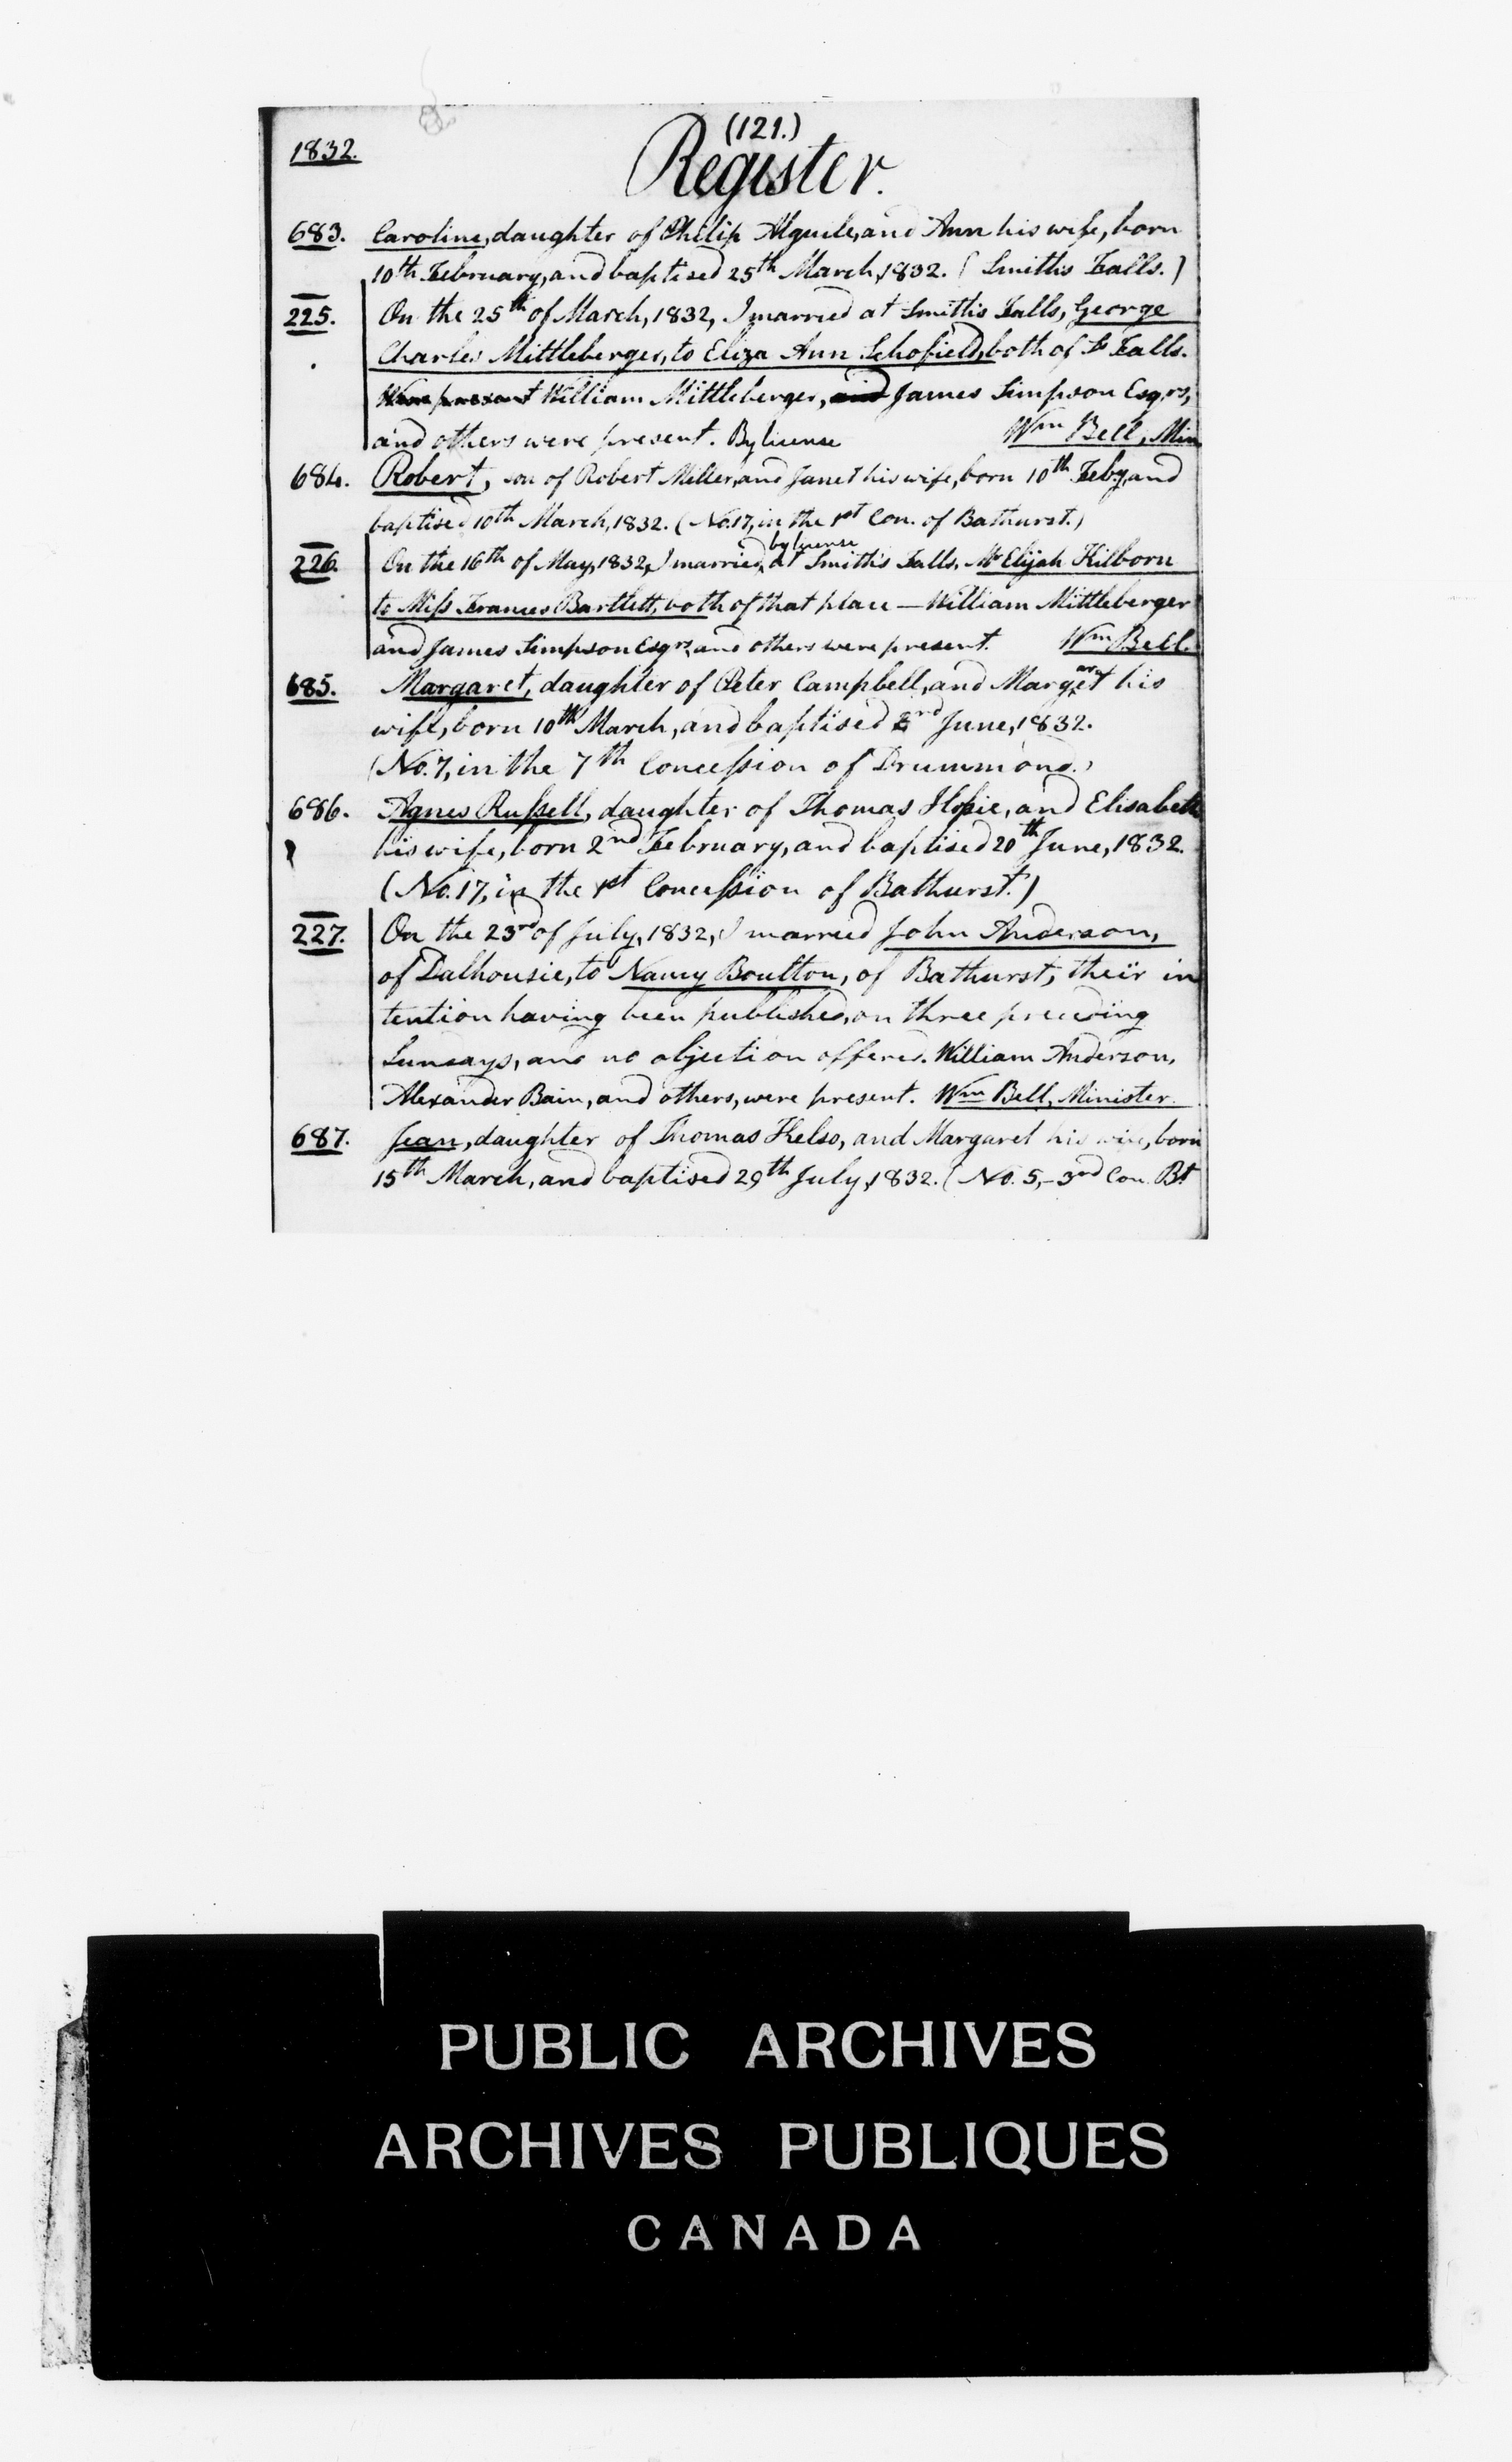 (121.)
1832.
Register.
683. Caroline, daughter of Philip Alguile, and Ann his wife, born
10th February, and baptised 25th March, 1832. (Smith's Falls.)
225. On the 25th of March, 1832, I married at Smith's Falls, George
Charles Mittleberger, to Eliza Ann Schofield, both of S. Falls.
Were present William Mittleberger, and James Simpson Esqrs,
and others were present. By license Wm Bell, Min
684. Robert, son of Robert Miller, and Janet his wife, born 10th Feby, and
baptised 10th March, 1832. (No. 17, in the 1st Con. of Bathurst.)
by license
226. On the 16th of May, 1832, I married, at Smith's Falls, Mr Elijah Kilborn
to Miss Frances Bartlett, both of that place — William Mittleberger
and James Simpson Esqrs, and others were present. Wm Bell.
685. Margaret, daughter of Peter Campbell, and Margaret his
wife, born 10th March, and baptised 2nd June, 1832.
(No. 7, in the 7th Concession of Drummond.)
686. Agnes Russell, daughter of Thomas and Elisabeth
his wife, born 2nd February, and baptised 20th June, 1832.
(No. 17, in the 1st Concession of Bathurst.)
227. On the 23rd of July, 1832, I married John Anderson,
of Dalhousie, to Nancy Boulton, of Bathurst, their in
tention having been published, on three preceding
Sundays, and no objection offered. William Anderson,
Alexander Bain, and others, were present. Wm Bell, Minister.
687. Jean, daughter of Thomas Kelso, and Margaret his wife, born
15th March, and baptised 29th July, 1832. (No. 5,– 3rd Con. Bt
PUBLIC ARCHIVES
ARCHIVES PUBLIQUES
CANADA